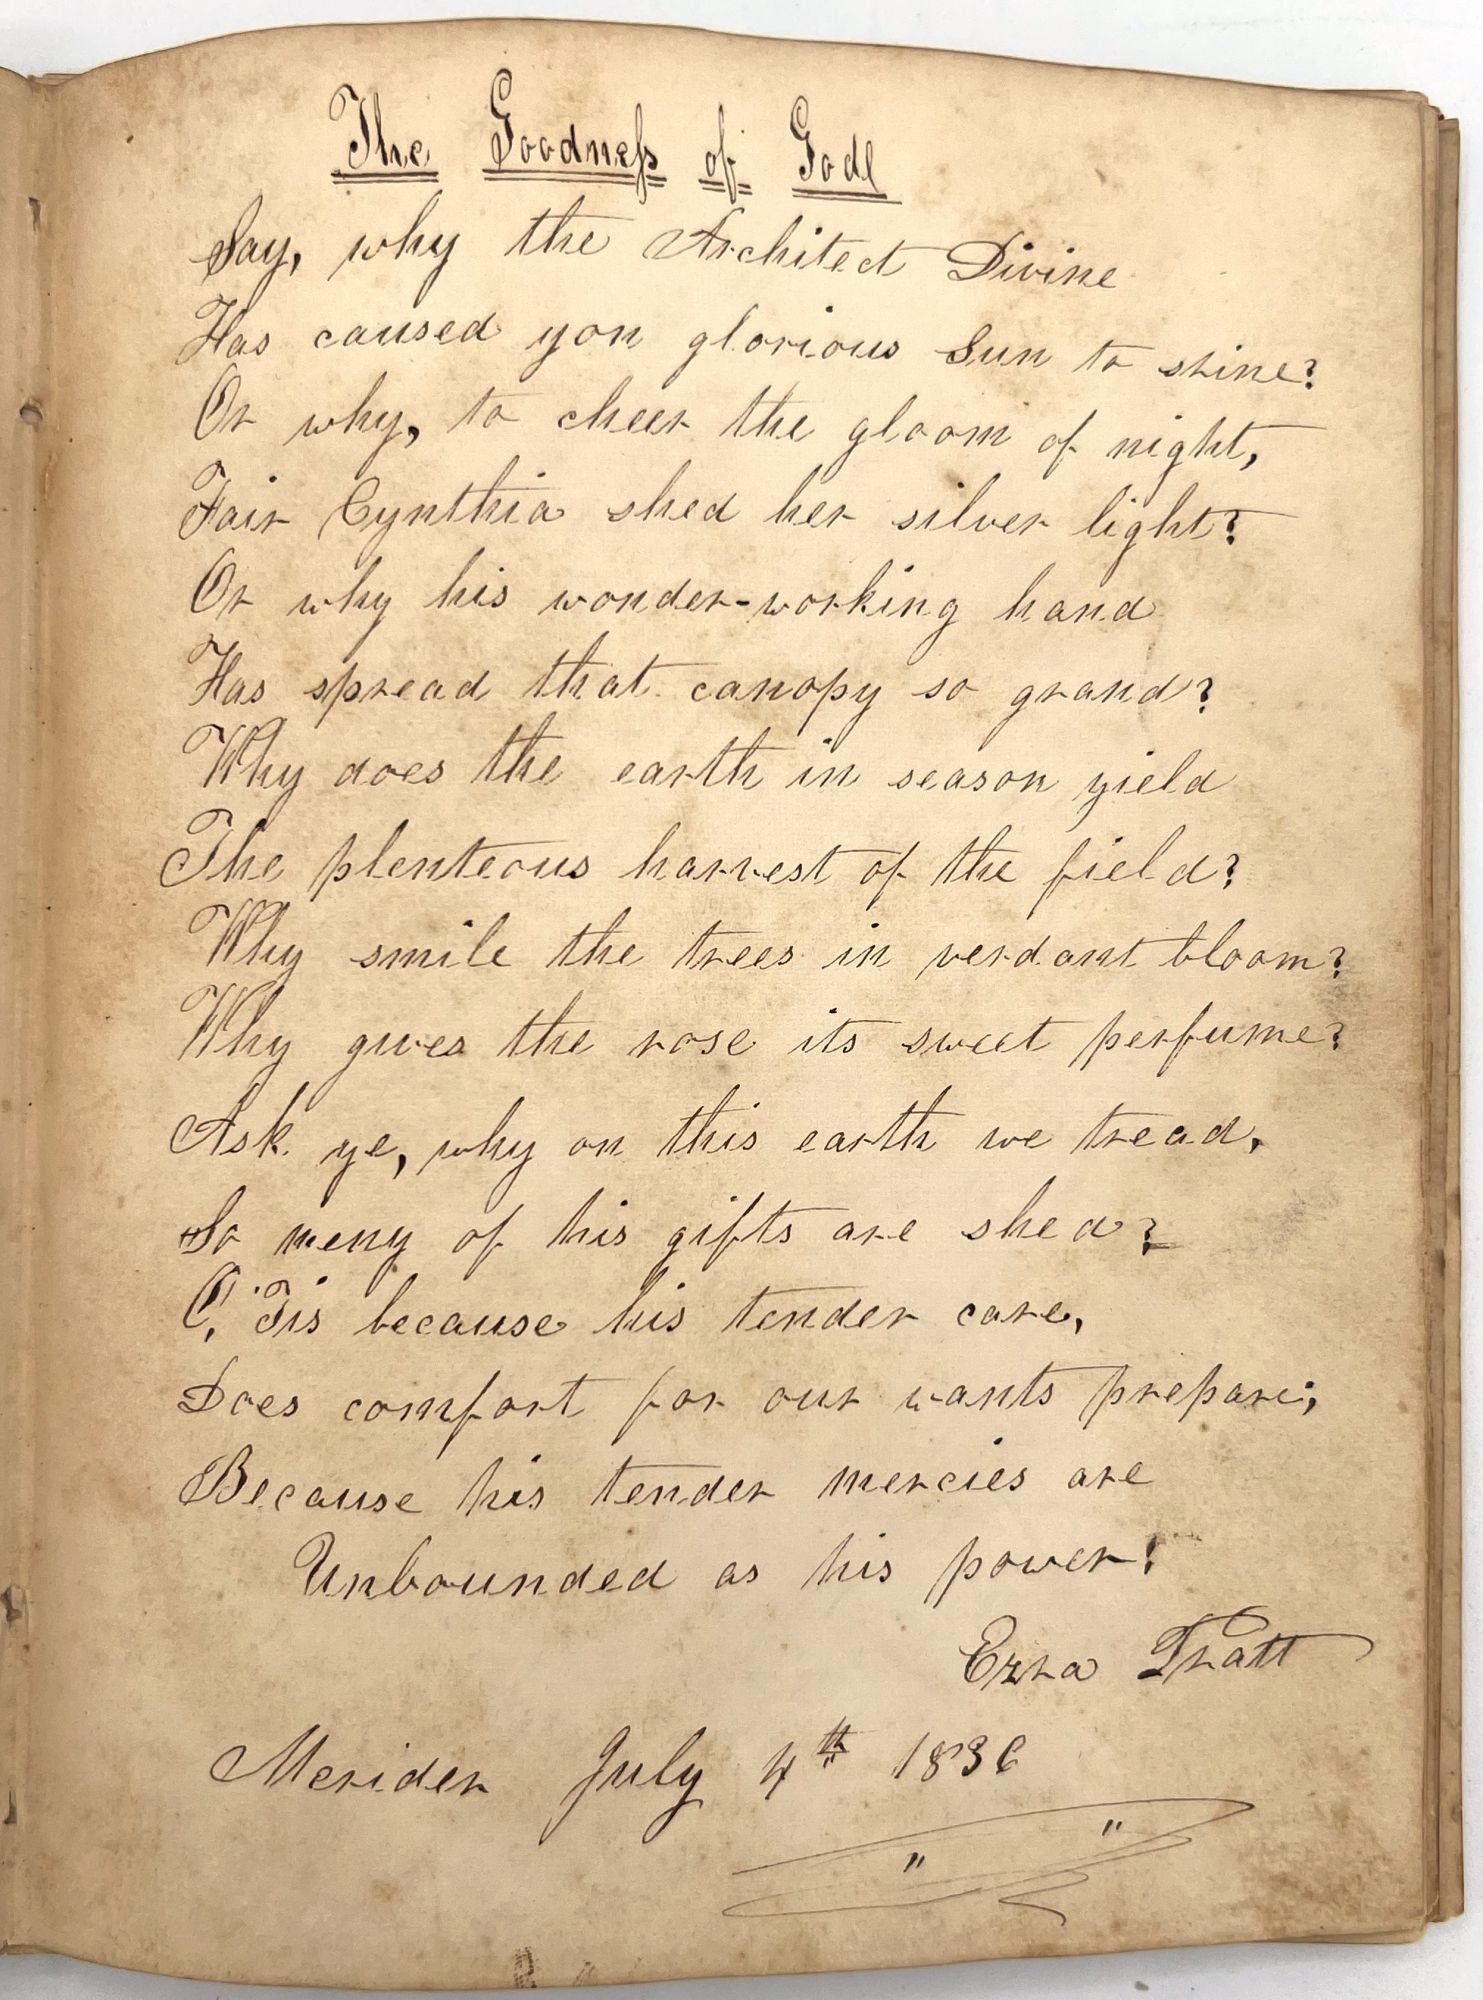 The Goodness of God
Say, why the Architect Divine
Has caused yon glorious Sun to shine?
Or why, to cheer the gloom of night,
Fair Cynthia shed her silver light?
Or why his wonder-working hand
Has spread that canopy so grand?
Why does the earth in season yield
The plenteous harvest of the field?
Why smile the trees in verdant bloom?
Why gives the rose its sweet perfume?
Ask ye, why on this earth we tread,
So meny of his gifts are shed?
O, 'Tis because his tender care,
Does comfort for our wants prepare;
Because his tender mercies are
Unbounded as his power!
Ezra Pratt
Meriden July 4th 1836